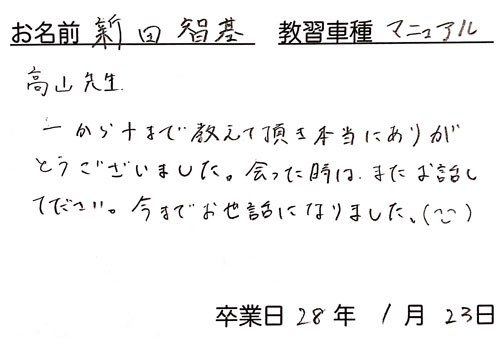 お名前 新田智基 教習車種 マニュアル
高山先生.
一から十まで教えて頂き本当にありが
とうございました。会った時は、またお話し
てださい。今までお世話になりました、(^^)
卒業日 28年 1月 23日